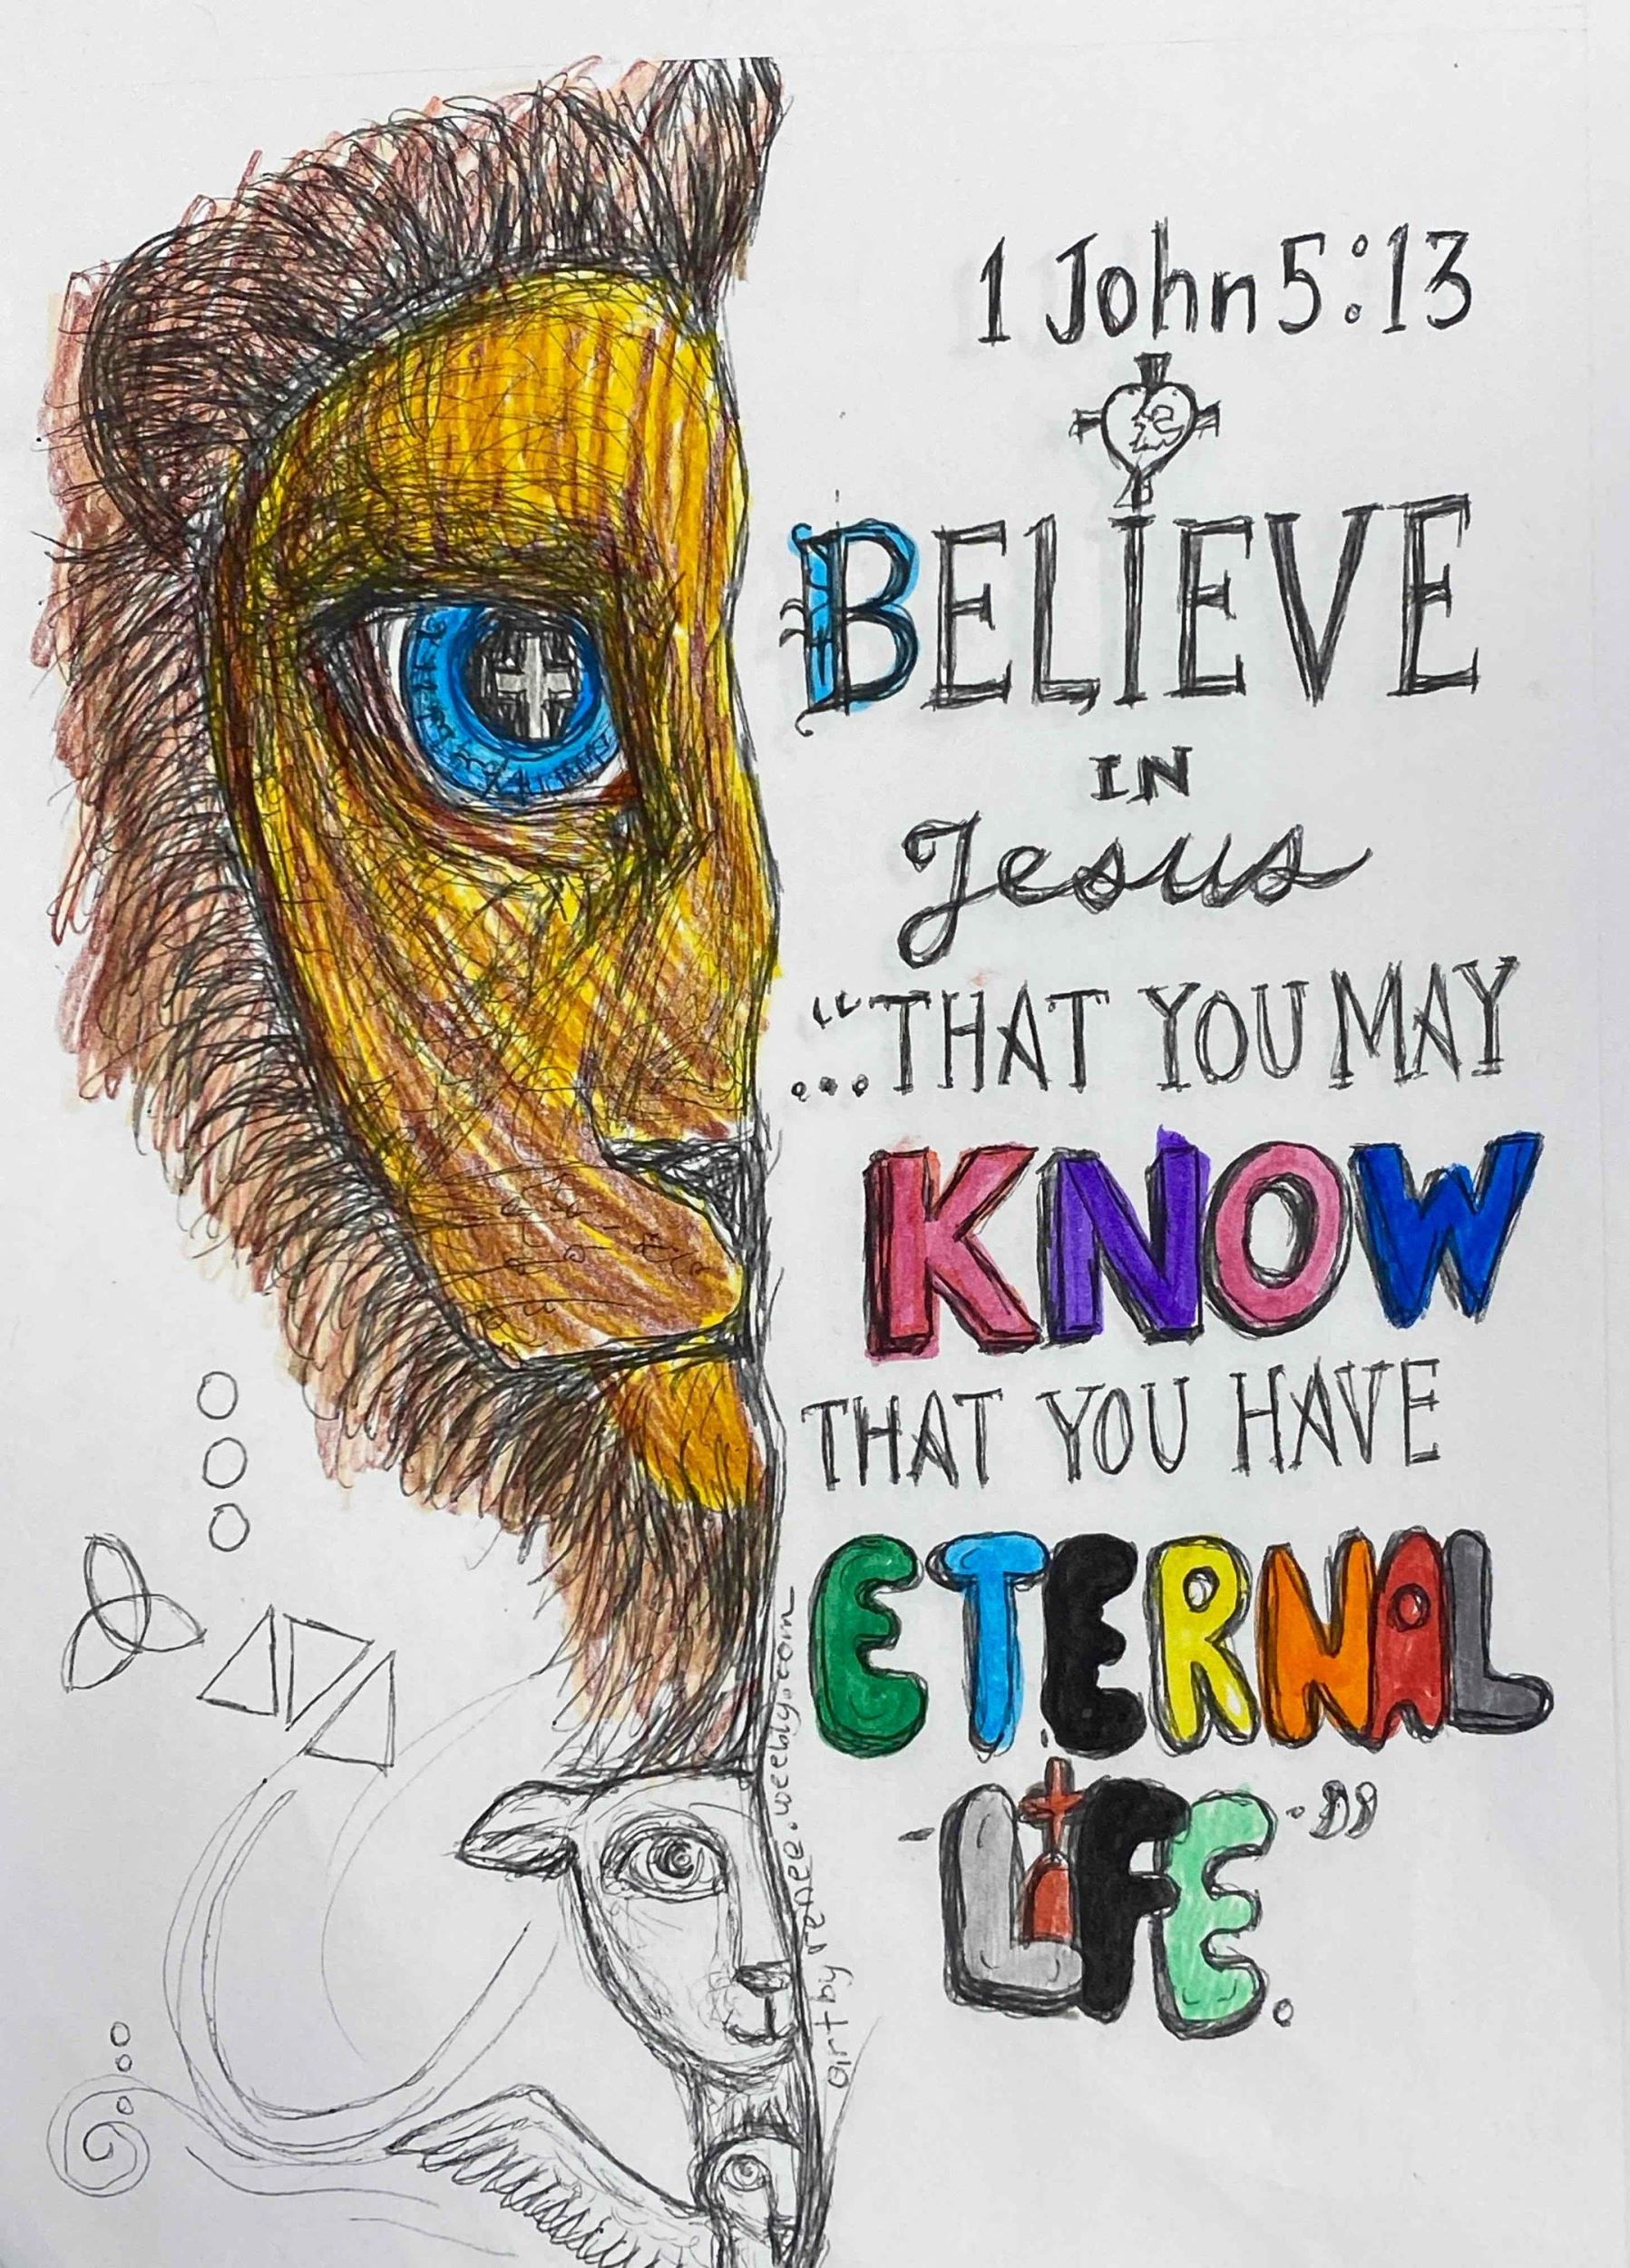 1 John 5:13
BELIEVE
IN
Jesus
“...THAT YOU MAY
KNOW
THAT YOU HAVE
ETERNAL
LIFE.”
art by renee.weebly.com